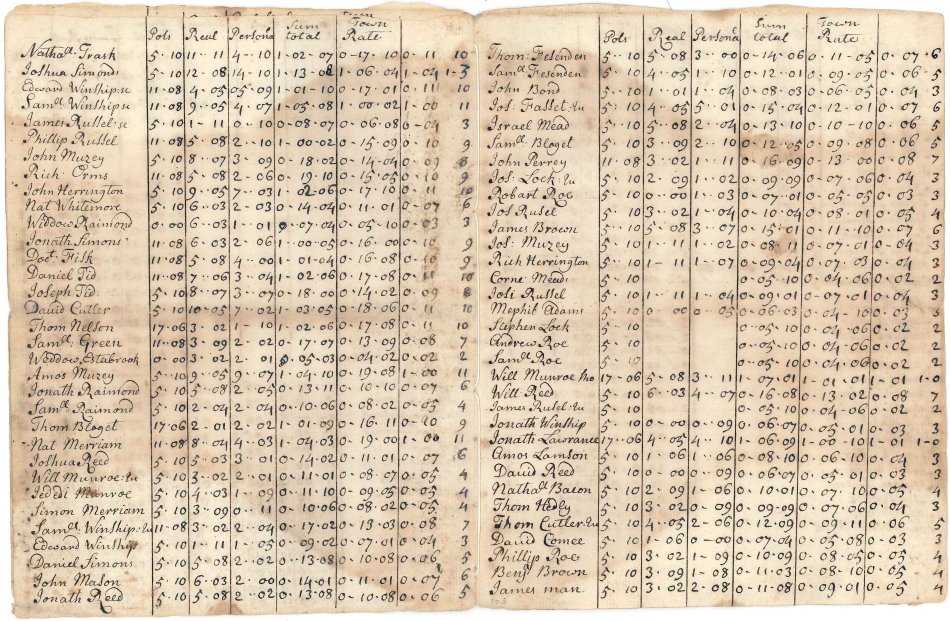 Pols Real Persona Sum total Town Rate
Nathall Trask 5.10 11.11 4.10 1.02.07 0.17.10 0.11 10
Joshua Simonds 5.10 12.08 14.10 1.13.08 1.06.04 1.04 1.3
Edward Winship se 11.08 4.05 05.09 1.01.10 0.17.01 0.11 10
Samll Winship se 11.08 9.05 4.07 1.05.08 1.00.02 1.00 11
James Russel se 5.10 1.11 0.10 0.08.07 0.06.08 0.04 3
Phillip Russel 11.08 5.08 2.10 1.00.02 0.15.09 0.10 9
John Muzey 5.10 8.07 3.09 0.18.02 0.14.04 0.09 8
Rich Orms 11.08 5.08 2.06 0.19.10 0.15.05 0.10 9
John Herrington 5.10 9.05 7.03 1.02.06 0.17.10 0.11 10
Nat Whitemore 5.10 6.03 2.03 0.14.04 0.11.01 0.07 6
Widdow Raimond 0.00 6.03 1.01 0.07.04 0.05.10 0.03 3
Jonath Simons 11.08 6.03 2.06 1.00.05 0.16.00 0.10 9
Doct Fisk 11.08 5.08 4.00 1.01.04 0.16.08 0.10 9
Daniel Tid 11.08 7.06 3.04 1.02.06 0.17.08 0.11 10
Joseph Tid 5.10 8.07 3.07 0.18.00 0.14.02 0.09 8
David Cutler 5.10 10.05 7.02 1.03.05 0.18.06 0.11 10
Thom Nelson 17.06 3.02 1.10 1.02.06 0.17.08 0.11 10
Samll Green 11.08 3.09 2.02 0.17.07 0.13.09 0.08 7
Weddow Estabrook 0.00 3.02 2.01 0.05.03 0.04.02 0.02 2
Amos Muzey 5.10 9.05 9.07 1.04.10 0.19.08 1.00 11
Jonath Raimond 5.10 5.08 2.05 0.13.11 0.10.10 0.07 6
Samll Raimond 5.10 2.04 2.04 0.10.06 0.08.02 0.05 4
Thom Bloget 17.06 2.01 2.02 1.01.09 0.16.11 0.10 9
Nat Merriam 11.08 8.04 4.03 1.04.03 0.19.00 1.00 11
Joshua Reed 5.10 5.03 3.01 0.14.02 0.11.01 0.07 6
Will Munroe Ju 5.10 3.02 2.01 0.11.01 0.08.07 0.05 4
Jeddi Munroe 5.10 4.03 1.09 0.11.10 0.09.05 0.05 4
Simon Merriam 5.10 3.09 0.11 0.10.06 0.08.02 0.05 4
Samll Winship Ju 11.08 3.02 2.04 0.17.02 0.13.03 0.08 7
Edward Winship 5.10 1.11 1.05 0.09.02 0.07.01 0.04 3
Daniel Simons 5.10 5.08 2.02 0.13.08 0.10.08 0.06 5
John Mason 5.10 6.03 2.00 0.14.01 0.11.01 0.07 6
Jonath Reed 5.10 5.08 2.02 0.13.08 0.10.08 0.06 5
Pols Real Persona Sum total Town Rate
Thom Fesenden 5.10 5.08 3.00 0.14.06 0.11.05 0.07 6
Samll Fesenden 5.10 4.05 1.10 0.12.01 0.09.05 0.06 5
John Bond 5.10 1.01 1.04 0.08.03 0.06.05 0.04 3
Jos. Fasset Ju 5.10 4.05 5.01 0.15.04 0.12.01 0.07 6
Israel Mead 5.10 5.08 2.04 0.13.10 0.10.10 0.06 5
Samll Bloget 5.10 3.09 2.10 0.12.05 0.09.08 0.06 5
John Perrey 11.08 3.02 1.11 0.16.09 0.13.00 0.08 7
Jos. Lock Ju 5.10 2.09 1.02 0.09.09 0.07.06 0.04 3
Robart Roe 5.10 0.00 1.03 0.07.01 0.05.05 0.03 3
Jos Rusel 5.10 3.02 1.04 0.10.04 0.08.01 0.05 4
James Brown 5.10 5.08 3.07 0.15.01 0.11.10 0.07 6
Jos. Muzey 5.10 1.11 1.02 0.08.11 0.07.01 0.04 3
Rich Herrington 5.10 1.11 1.07 0.09.04 0.07.03 0.04 3
Corne Mead 5.10 0.05.10 0.04.06 0.02 2
Josi Russel 5.10 1.11 1.04 0.09.01 0.07.01 0.04 3
Mephib Adams 5.10 0.00 0.05 0.06.03 0.04.10 0.03 3
Stephen Lock 5.10 0.05.10 0.04.06 0.02 2
Andrew Roe 5.10 0.05.10 0.04.06 0.02 2
Samll Roe 5.10 0.05.10 0.04.06 0.02 2
Will Munroe 17.06 5.08 3.11 1.07.01 1.01.01 1.01 1.0
Will Reed 5.10 6.03 4.07 0.16.08 0.13.02 0.08 7
James Rusel Ju 5.10 0.05.10 0.04.06 0.02 2
Jonath Winship 5.10 0.00 0.09 0.06.07 0.05.01 0.03 3
Jonath Lawrance 17.06 4.05 4.10 1.06.09 1.00.10 1.01 1.0
Amos Lamson 5.10 1.06 1.06 0.08.10 0.06.10 0.04 3
David Reed 5.10 0.00 0.09 0.06.07 0.05.01 0.03 3
Nathall Bacon 5.10 2.09 1.06 0.10.01 0.07.10 0.05 4
Thom Hedley 5.10 3.02 0.09 0.09.09 0.07.06 0.04 3
Thom Cutler Ju 5.10 4.05 2.06 0.12.09 0.09.11 0.06 5
David Comee 5.10 1.06 0.00 0.07.04 0.05.08 0.03 3
Phillip Roe 5.10 3.02 1.09 0.10.09 0.08.05 0.05 4
Benj Brown 5.10 3.09 1.08 0.11.03 0.08.10 0.05 4
James man 5.10 3.02 2.08 0.11.08 0.09.01 0.05 4